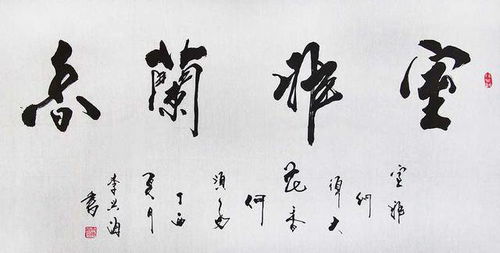 室雅蘭香
室雅
何
須大
花香
何
須多
丁酉
夏月
書